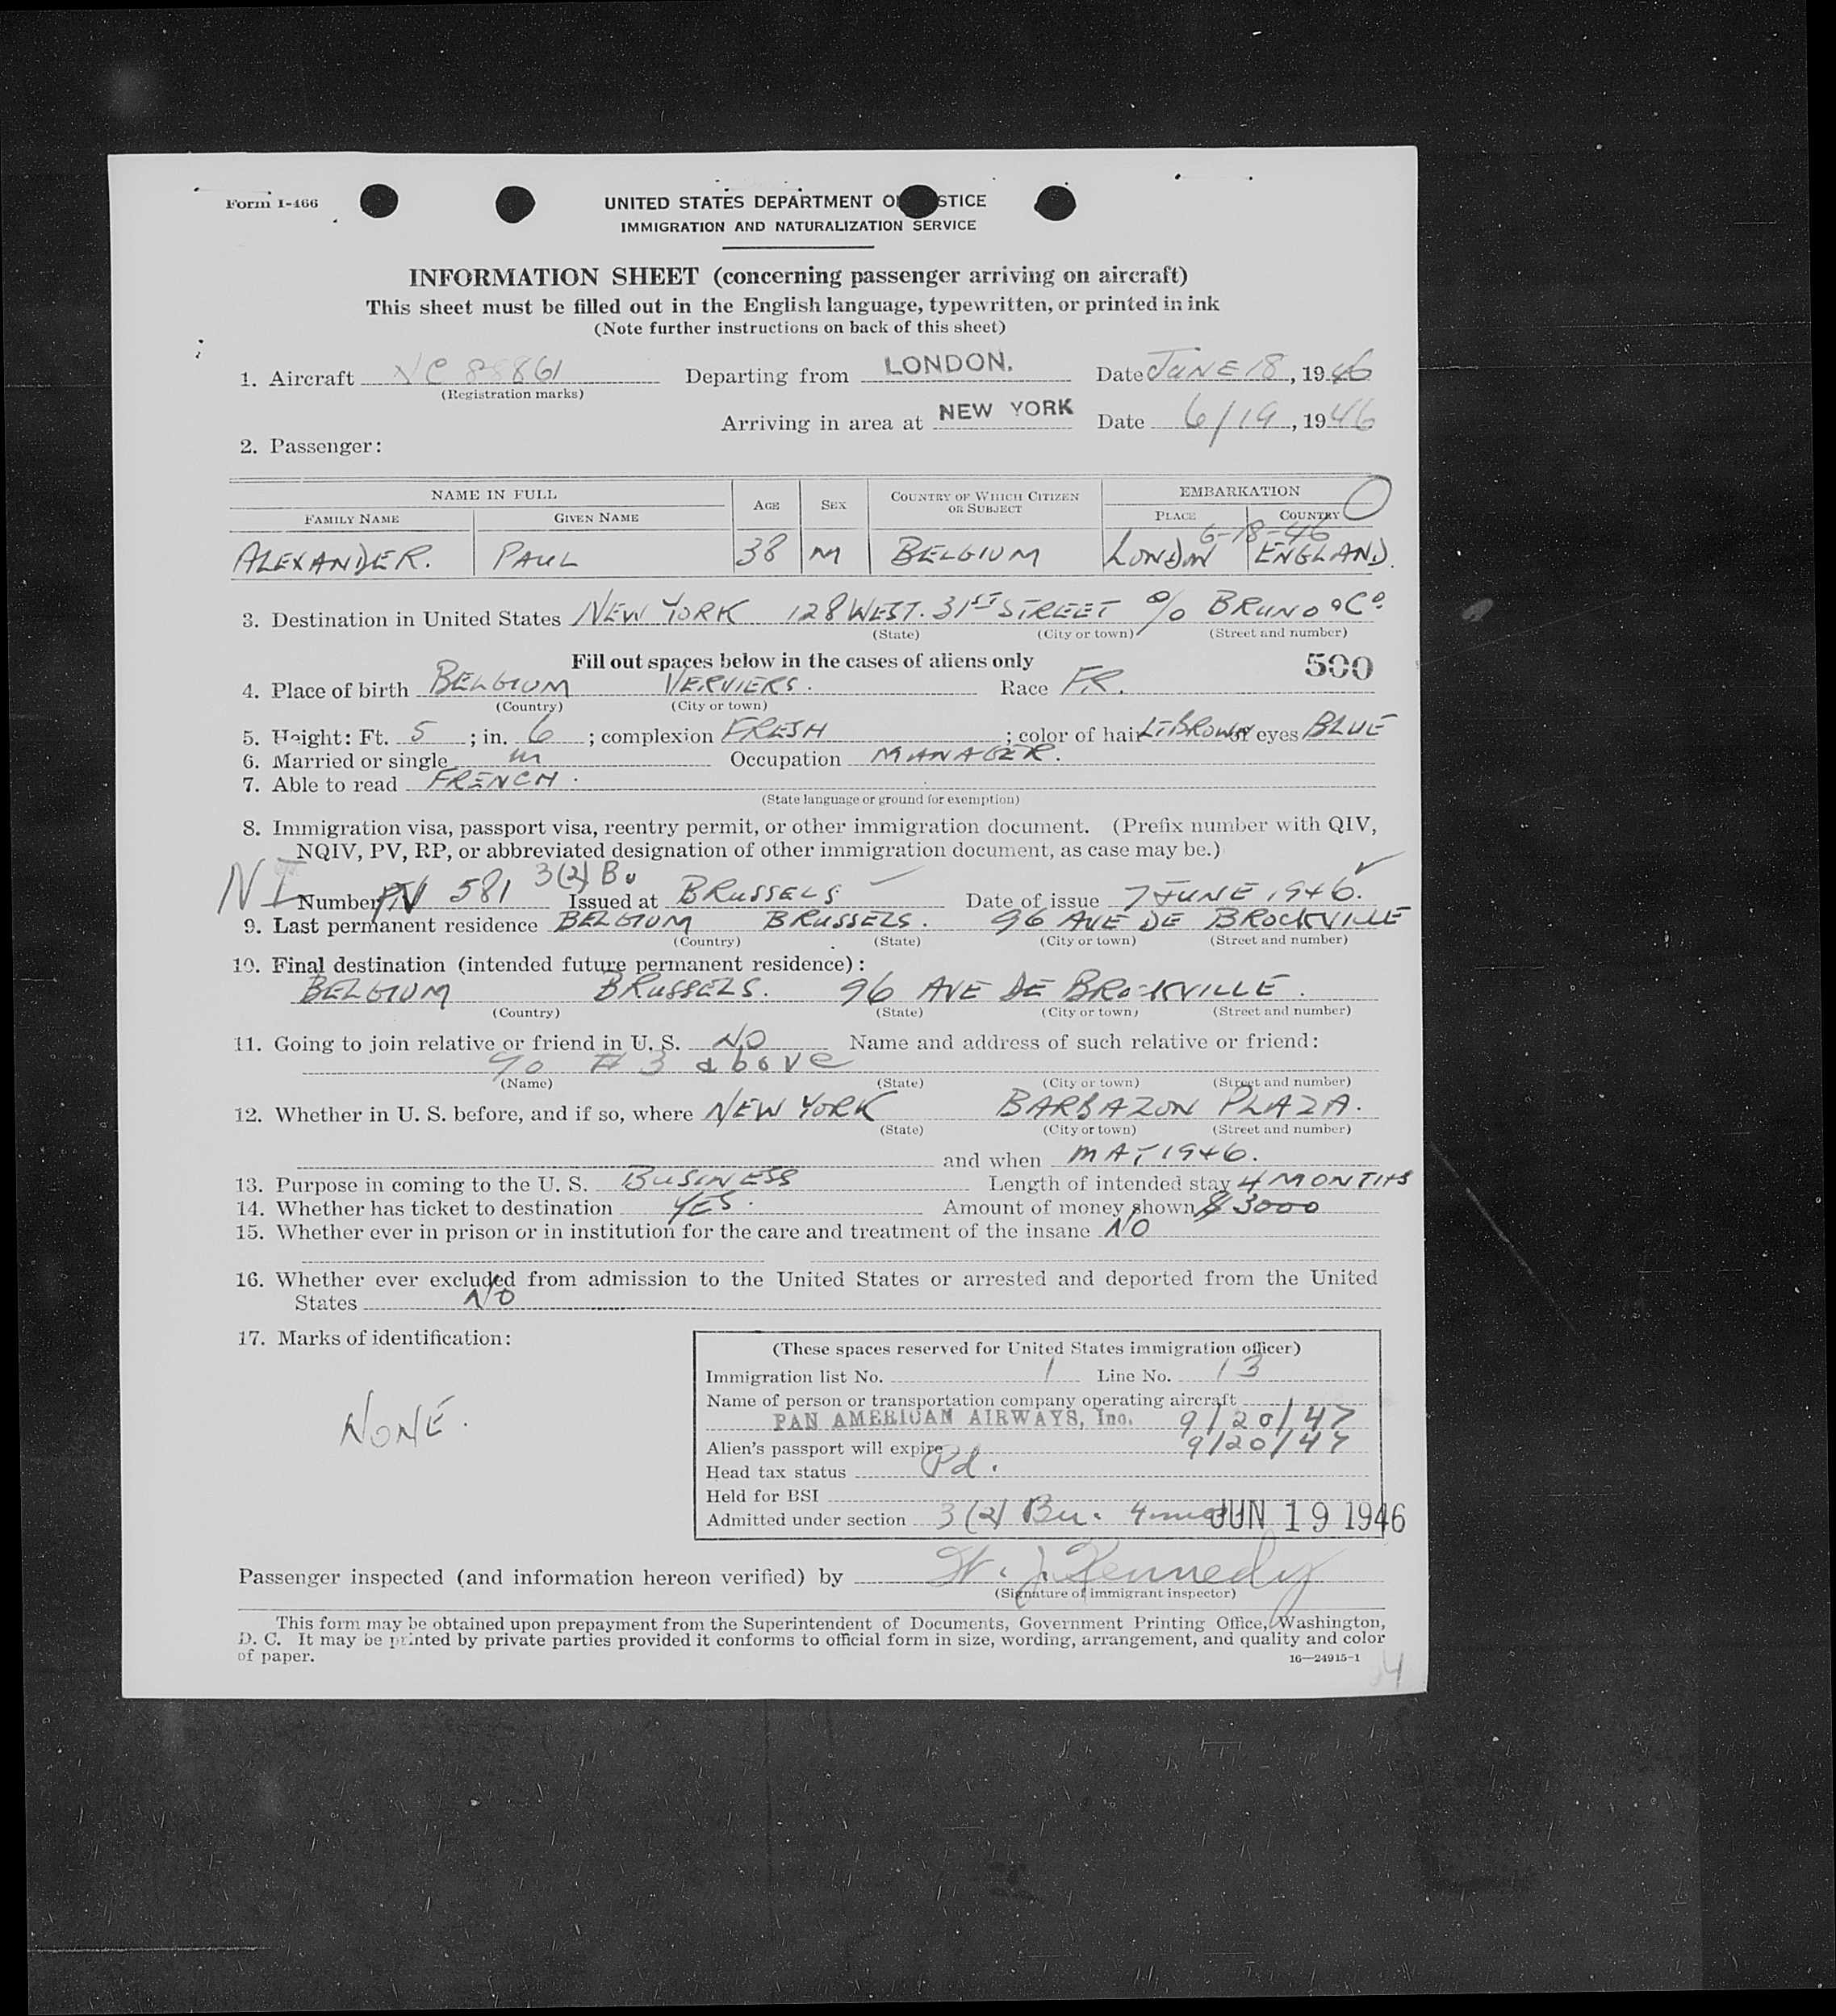 Form I-466
UNITED STATES DEPARTMENT OF JUSTICE
IMMIGRATION AND NATURALIZATION SERVICE
INFORMATION SHEET (concerning passenger arriving on aircraft)
This sheet must be filled out in the English language, typewritten, or printed in ink
(Note further instructions on back of this sheet)
1. Aircraft NC 88861 Departing from LONDON. Date JUNE 18, 1946
(Registration marks)
Arriving in area at NEW YORK Date 6/19, 1946
2. Passenger:
NAME IN FULL AGE SEX COUNTRY OF WHICH CITIZEN OR SUBJECT EMBARKATION
FAMILY NAME GIVEN NAME PLACE COUNTRY
6-18-46
ALEXANDER. PAUL 38 M BELGIUM LONDON ENGLAND.
3. Destination in United States NEW YORK 128 WEST. 31ST STREET c/o BRUNO & Co.
(State) (City or town) (Street and number)
Fill out spaces below in the cases of aliens only 500
4. Place of birth BELGIUM VERVIERS. Race FR.
(Country) (City or town)
5. Height: Ft. 5; in. 6; complexion FRESH; color of hair LT BROWN of eyes BLUE
6. Married or single m Occupation MANAGER.
7. Able to read FRENCH.
(State language or ground for exemption)
8. Immigration visa, passport visa, reentry permit, or other immigration document. (Prefix number with QIV,
NQIV, PV, RP, or abbreviated designation of other immigration document, as case may be.)
NI Number PV 581 3(2) Bu Issued at BRUSSELS Date of issue 7 JUNE 1946.
9. Last permanent residence BELGIUM BRUSSELS. 96 AVE DE BROCKVILLE
(Country) (State) (City or town) (Street and number)
10. Final destination (intended future permanent residence):
BELGIUM BRUSSELS. 96 AVE DE BROCKVILLE.
(Country) (State) (City or town) (Street and number)
11. Going to join relative or friend in U. S. NO Name and address of such relative or friend:
c/o # 3 above
(Name) (State) (City or town) (Street and number)
12. Whether in U. S. before, and if so, where NEW YORK BARBAZON PLAZA.
(State) (City or town) (Street and number)
and when MAY 1946.
13. Purpose in coming to the U. S. BUSINESS Length of intended stay 4 MONTHS
14. Whether has ticket to destination YES. Amount of money shown $ 3000
15. Whether ever in prison or in institution for the care and treatment of the insane NO
16. Whether ever excluded from admission to the United States or arrested and deported from the United
States NO
17. Marks of identification:
NONE.
(These spaces reserved for United States immigration officer)
Immigration list No. 1 Line No. 13
Name of person or transportation company operating aircraft
PAN AMERICAN AIRWAYS, Inc. 9/20/47
Alien's passport will expire 9/20/47
Head tax status Pd.
Held for BSI
Admitted under section 3(2) Bu. 4 mos JUN 19 1946
Passenger inspected (and information hereon verified) by W. J. Kennedy
(Signature of immigrant inspector)
This form may be obtained upon prepayment from the Superintendent of Documents, Government Printing Office, Washington,
D. C. It may be printed by private parties provided it conforms to official form in size, wording, arrangement, and quality and color
of paper.
16—24915-1